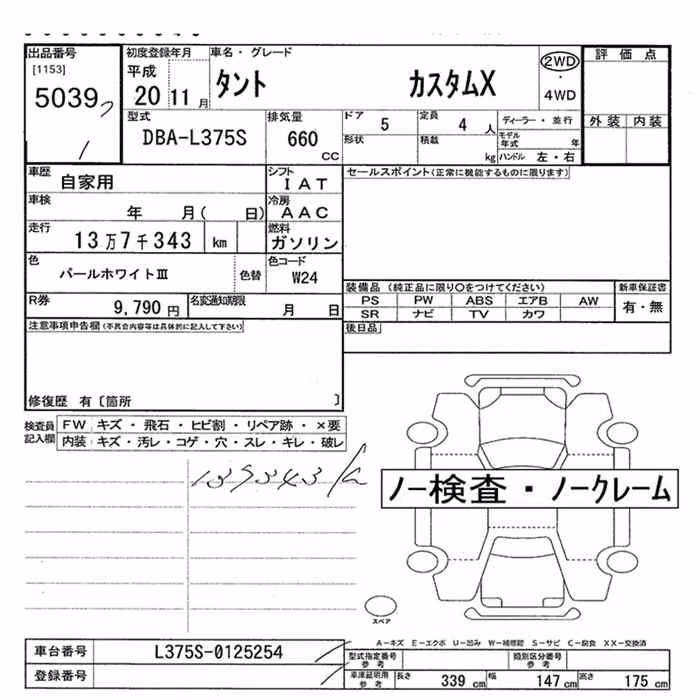 出品番号 初度登録年月 車名・グレード 評価点
[1153] 平成 2WD
5039 20 11月 タント カスタムX ・
4WD
外装 内装
型式 排気量 ドア 5 定員 4人 ディーラー・並行
DBA-L375S 660 CC 形状 積載 kg モデル年式 年
ハンドル 左・右
車歴 自家用 シフト IAT セールスポイント(正常に機能するものに限ります)
車検 年 月( 日) 冷房 AAC
走行 13万7千343 km 燃料 ガソリン
色 パールホワイトⅢ 色替 色コード W24
装備品 (純正品に限り〇をつけてください) 新車保証書
R券 9,790円 名変通知期限 月 日 PS PW ABS エアB AW 有・無
SR ナビ TV カワ
注意事項申告欄(不具合内容等は具体的に記入して下さい) 後日品
修復歴 有〔箇所 〕
検査員記入欄 FW キズ・飛石・ヒビ割・リペア跡・×要
内装 キズ・汚レ・コゲ・穴・スレ・キレ・破レ
ノー検査・ノークレーム
スペア
A-キズ E-エクボ U-凹み W-補修跡 S-サビ C-腐食 XX-交換済
車台番号 L375S-0125254 型式指定番号 参考 類別区分番号 参考
登録番号 車庫証明用 参考 長さ 339cm 幅 147cm 高さ 175cm